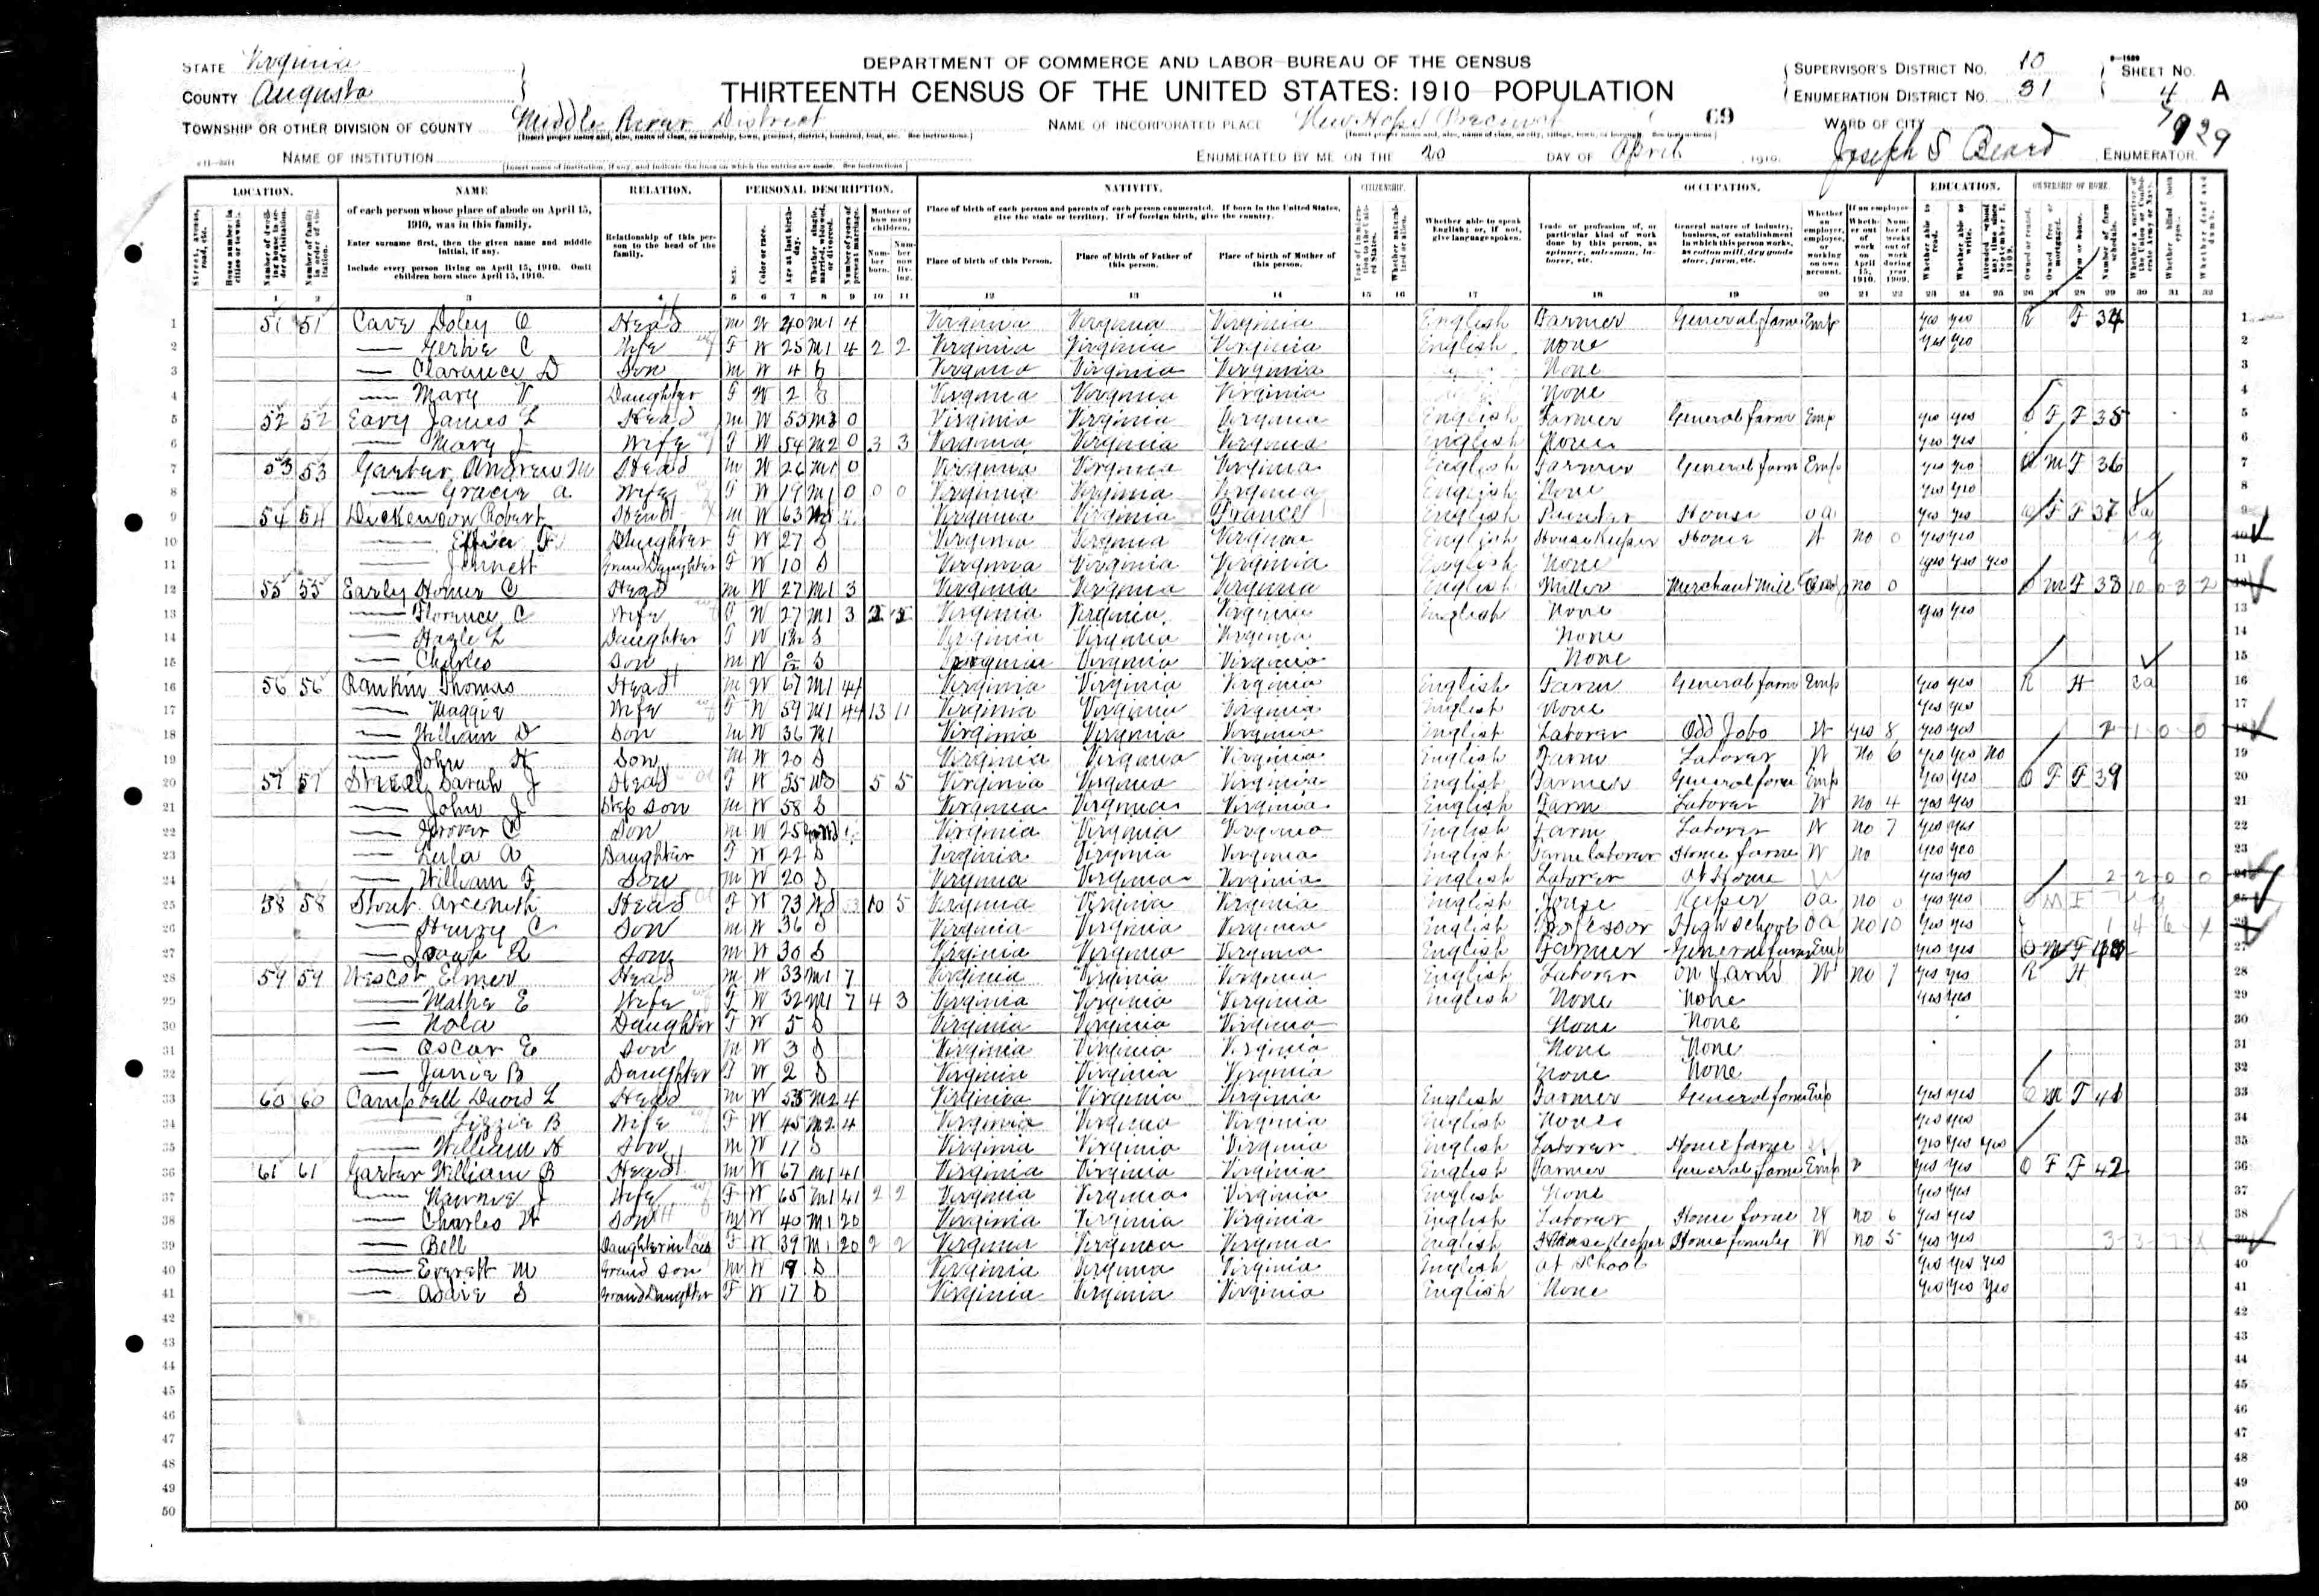 STATE Virginia
COUNTY Augusta
TOWNSHIP OR OTHER DIVISION OF COUNTY Middle River District
NAME OF INSTITUTION
DEPARTMENT OF COMMERCE AND LABOR—BUREAU OF THE CENSUS
THIRTEENTH CENSUS OF THE UNITED STATES: 1910—POPULATION
NAME OF INCORPORATED PLACE New Hope Precinct
69
ENUMERATED BY ME ON THE 20 DAY OF April, 1910. Joseph S Beard, ENUMERATOR.
SUPERVISOR'S DISTRICT No. 10
ENUMERATION DISTRICT No. 31
SHEET No. 4 A
WARD OF CITY
7929
LOCATION. NAME RELATION. PERSONAL DESCRIPTION. NATIVITY. CITIZENSHIP. OCCUPATION. EDUCATION. OWNERSHIP OF HOME.
of each person whose place of abode on April 15, 1910, was in this family.
Enter surname first, then the given name and middle initial, if any.
Include every person living on April 15, 1910. Omit children born since April 15, 1910.
Relationship of this person to the head of the family.
Place of birth of each person and parents of each person enumerated. If born in the United States, give the state or territory. If of foreign birth, give the country.
Place of birth of this Person. Place of birth of Father of this person. Place of birth of Mother of this person.
Whether able to speak English; or, if not, give language spoken.
Trade or profession of, or particular kind of work done by this person, as spinner, salesman, laborer, etc.
General nature of industry, business, or establishment in which this person works, as cotton mill, dry goods store, farm, etc.
1 2 3 4 5 6 7 8 9 10 11 12 13 14 15 16 17 18 19 20 21 22 23 24 25 26 27 28 29 30 31 32
1 51 51 Cave Doley C Head M W 40 M1 4 Virginia Virginia Virginia English Farmer General farm Emp yes yes R F 34
2 — C Wife F W 25 M1 4 2 2 Virginia Virginia Virginia English None yes yes
3 — Clarance D Son M W 4 S Virginia Virginia Virginia None
4 — Mary V Daughter F W 2 S Virginia Virginia Virginia None
5 52 52 Eavy James L Head M W 55 0 Virginia Virginia Virginia English Farmer General farm Emp yes yes O F F 35
6 — Mary J Wife F W 54 M2 0 3 3 Virginia Virginia Virginia English None yes yes
7 53 53 Garber Andrew M Head M W 26 M1 0 Virginia Virginia Virginia English Farmer General farm Emp yes yes O M F 36
8 — Gracie A Wife F W 19 M1 0 0 0 Virginia Virginia Virginia English None yes yes
9 54 54 Dickenson Robert Head M W 63 Wd Virginia Virginia France English Painter House OA yes yes O F F 37 CA
10 — Effie F Daughter F W 27 S Virginia Virginia Virginia English House Keeper Home W no 0 yes yes
11 — Grand Daughter F W 10 S Virginia Virginia Virginia English None yes yes yes
12 55 55 Early Homer C Head M W 27 M1 3 Virginia Virginia Virginia English Miller Merchant Mill Emp no 0 O M F 38 10 0 3 2
13 — Florence C Wife F W 27 M1 3 2 2 Virginia Virginia Virginia English None yes yes
14 — Hazle L Daughter F W S Virginia Virginia Virginia None
15 — Charles Son M W S Virginia Virginia Virginia None
16 56 56 Rankin Thomas Head M W 67 M1 44 Virginia Virginia Virginia English Farm General farm Emp yes yes R H CA
17 — Maggie Wife F W 59 M1 44 13 11 Virginia Virginia Virginia English None yes yes
18 — William D Son M W 36 M1 Virginia Virginia Virginia English Laborer Odd Jobs W yes 8 yes yes 2 1 0 0
19 — John H Son M W 20 S Virginia Virginia Virginia English Farm Laborer W No 6 yes yes No
20 57 57 Sarah J Head F W 55 Wd 5 5 Virginia Virginia Virginia English Farmer General farm Emp yes yes O F F 39
21 — John J Step Son M W 58 S Virginia Virginia Virginia English Farm Laborer W no 4 yes yes
22 — Grover C Son M W 25 Virginia Virginia Virginia English Farm Laborer W no 7 yes yes
23 — Lula A Daughter F W 22 S Virginia Virginia Virginia English Farm laborer Home farm W no yes yes
24 — William F Son M W 20 S Virginia Virginia Virginia English Laborer At Home W yes yes 2 2 0 0
25 58 58 Stout Head F W 73 Wd 10 5 Virginia Virginia Virginia English House Keeper OA no 0 yes yes O M F
26 — Henry C Son M W 36 S Virginia Virginia Virginia English Professor High School OA no 10 yes yes 1 4 6 X
27 — R Son M W 30 S Virginia Virginia Virginia English Farmer General farm Emp yes yes O M F
28 59 59 Elmer Head M W 33 M1 7 Virginia Virginia Virginia English Laborer On farm W no 7 yes yes R H
29 — E Wife F W 32 M1 7 4 3 Virginia Virginia Virginia English None None yes yes
30 — Nola Daughter F W 5 S Virginia Virginia Virginia None None
31 — Oscar E Son M W 3 S Virginia Virginia Virginia None None
32 — Janie B Daughter F W 2 S Virginia Virginia Virginia None None
33 60 60 Campbell David L Head M W 55 M2 4 Virginia Virginia Virginia English Farmer General farm Emp yes yes O M F 41
34 — Lizzie B Wife F W 45 M2 4 Virginia Virginia Virginia English None yes yes
35 — William H Son M W 17 S Virginia Virginia Virginia English Laborer Home farm yes yes yes
36 61 61 Garber William B Head M W 67 M1 41 Virginia Virginia Virginia English Farmer General farm Emp yes yes O F F 42
37 — Nannie J Wife F W 65 M1 41 2 2 Virginia Virginia Virginia English None yes yes
38 — Charles W Son M W 40 M1 20 Virginia Virginia Virginia English Laborer Home farm W no 6 yes yes
39 — Bell Daughter in law F W 39 M1 20 2 2 Virginia Virginia Virginia English House Keeper Home family W no 5 yes yes 3 3 7 X
40 — Everett M Grand Son M W 19 S Virginia Virginia Virginia English At School yes yes yes
41 — Addie S Grand Daughter F W 17 S Virginia Virginia Virginia English None yes yes yes
42
43
44
45
46
47
48
49
50